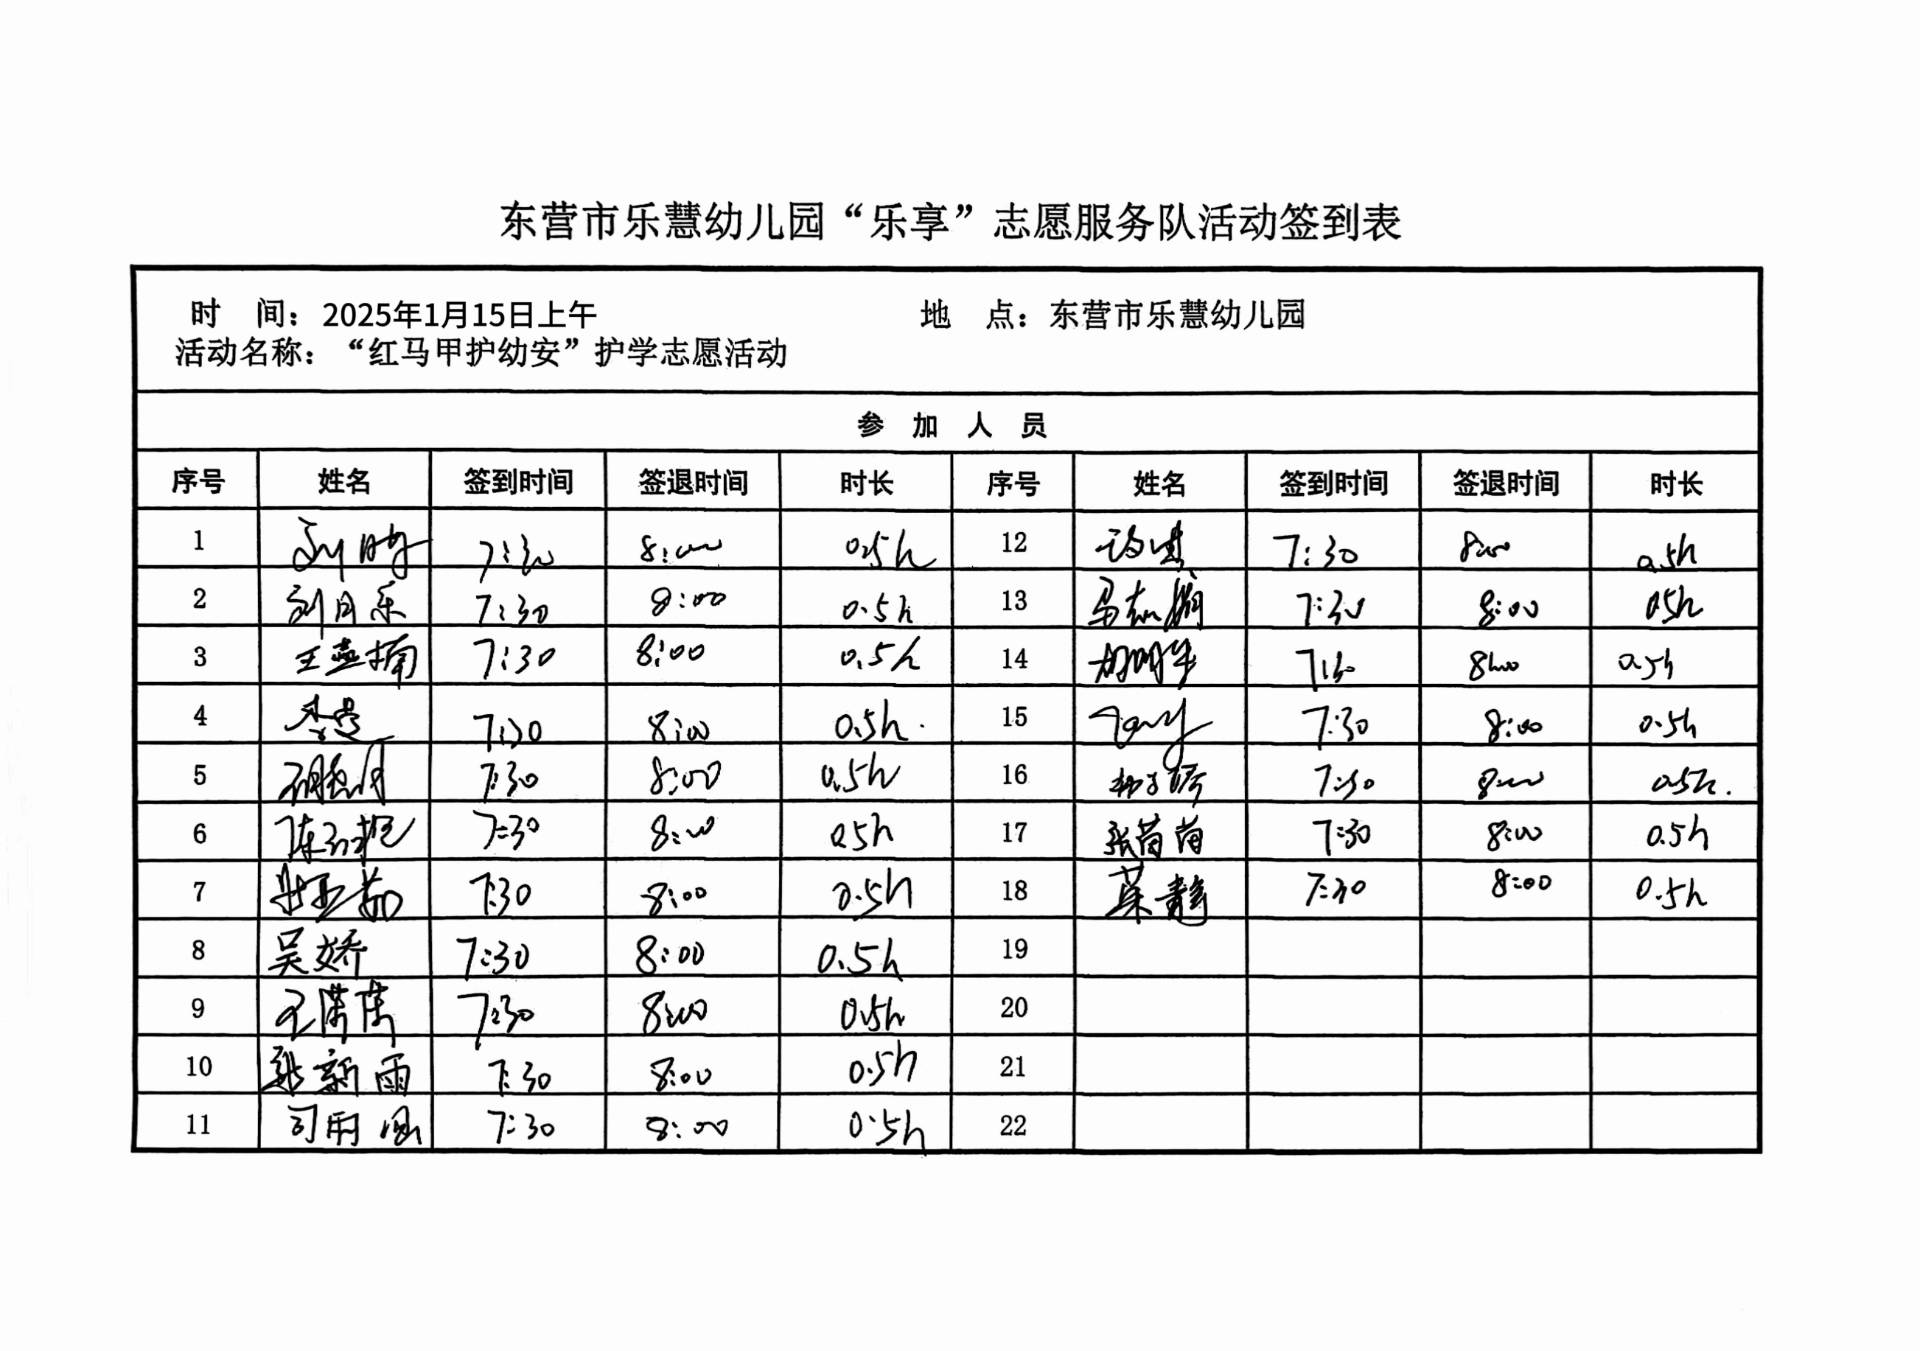 东营市乐慧幼儿园“乐享”志愿服务队活动签到表
时 间：2025年1月15日上午 地 点：东营市乐慧幼儿园
活动名称：“红马甲护幼安”护学志愿活动
参 加 人 员
序号 姓名 签到时间 签退时间 时长 序号 姓名 签到时间 签退时间 时长
1 7:30 8:00 0.5h 12 7:30 8:00 0.5h
2 刘月乐 7:30 8:00 0.5h 13 7:30 8:00 0.5h
3 王孟楠 7:30 8:00 0.5h 14 7:30 8:00 0.5h
4 7:30 8:00 0.5h. 15 7:30 8:00 0.5h
5 7:30 8:00 0.5h 16 7:30 8:00 0.5h.
6 7:30 8:00 0.5h 17 张茵茵 7:30 8:00 0.5h
7 7:30 8:00 0.5h 18 7:30 8:00 0.5h
8 吴娇 7:30 8:00 0.5h 19
9 7:30 8:00 0.5h 20
10 张新雨 7:30 8:00 0.5h 21
11 7:30 8:00 0.5h 22